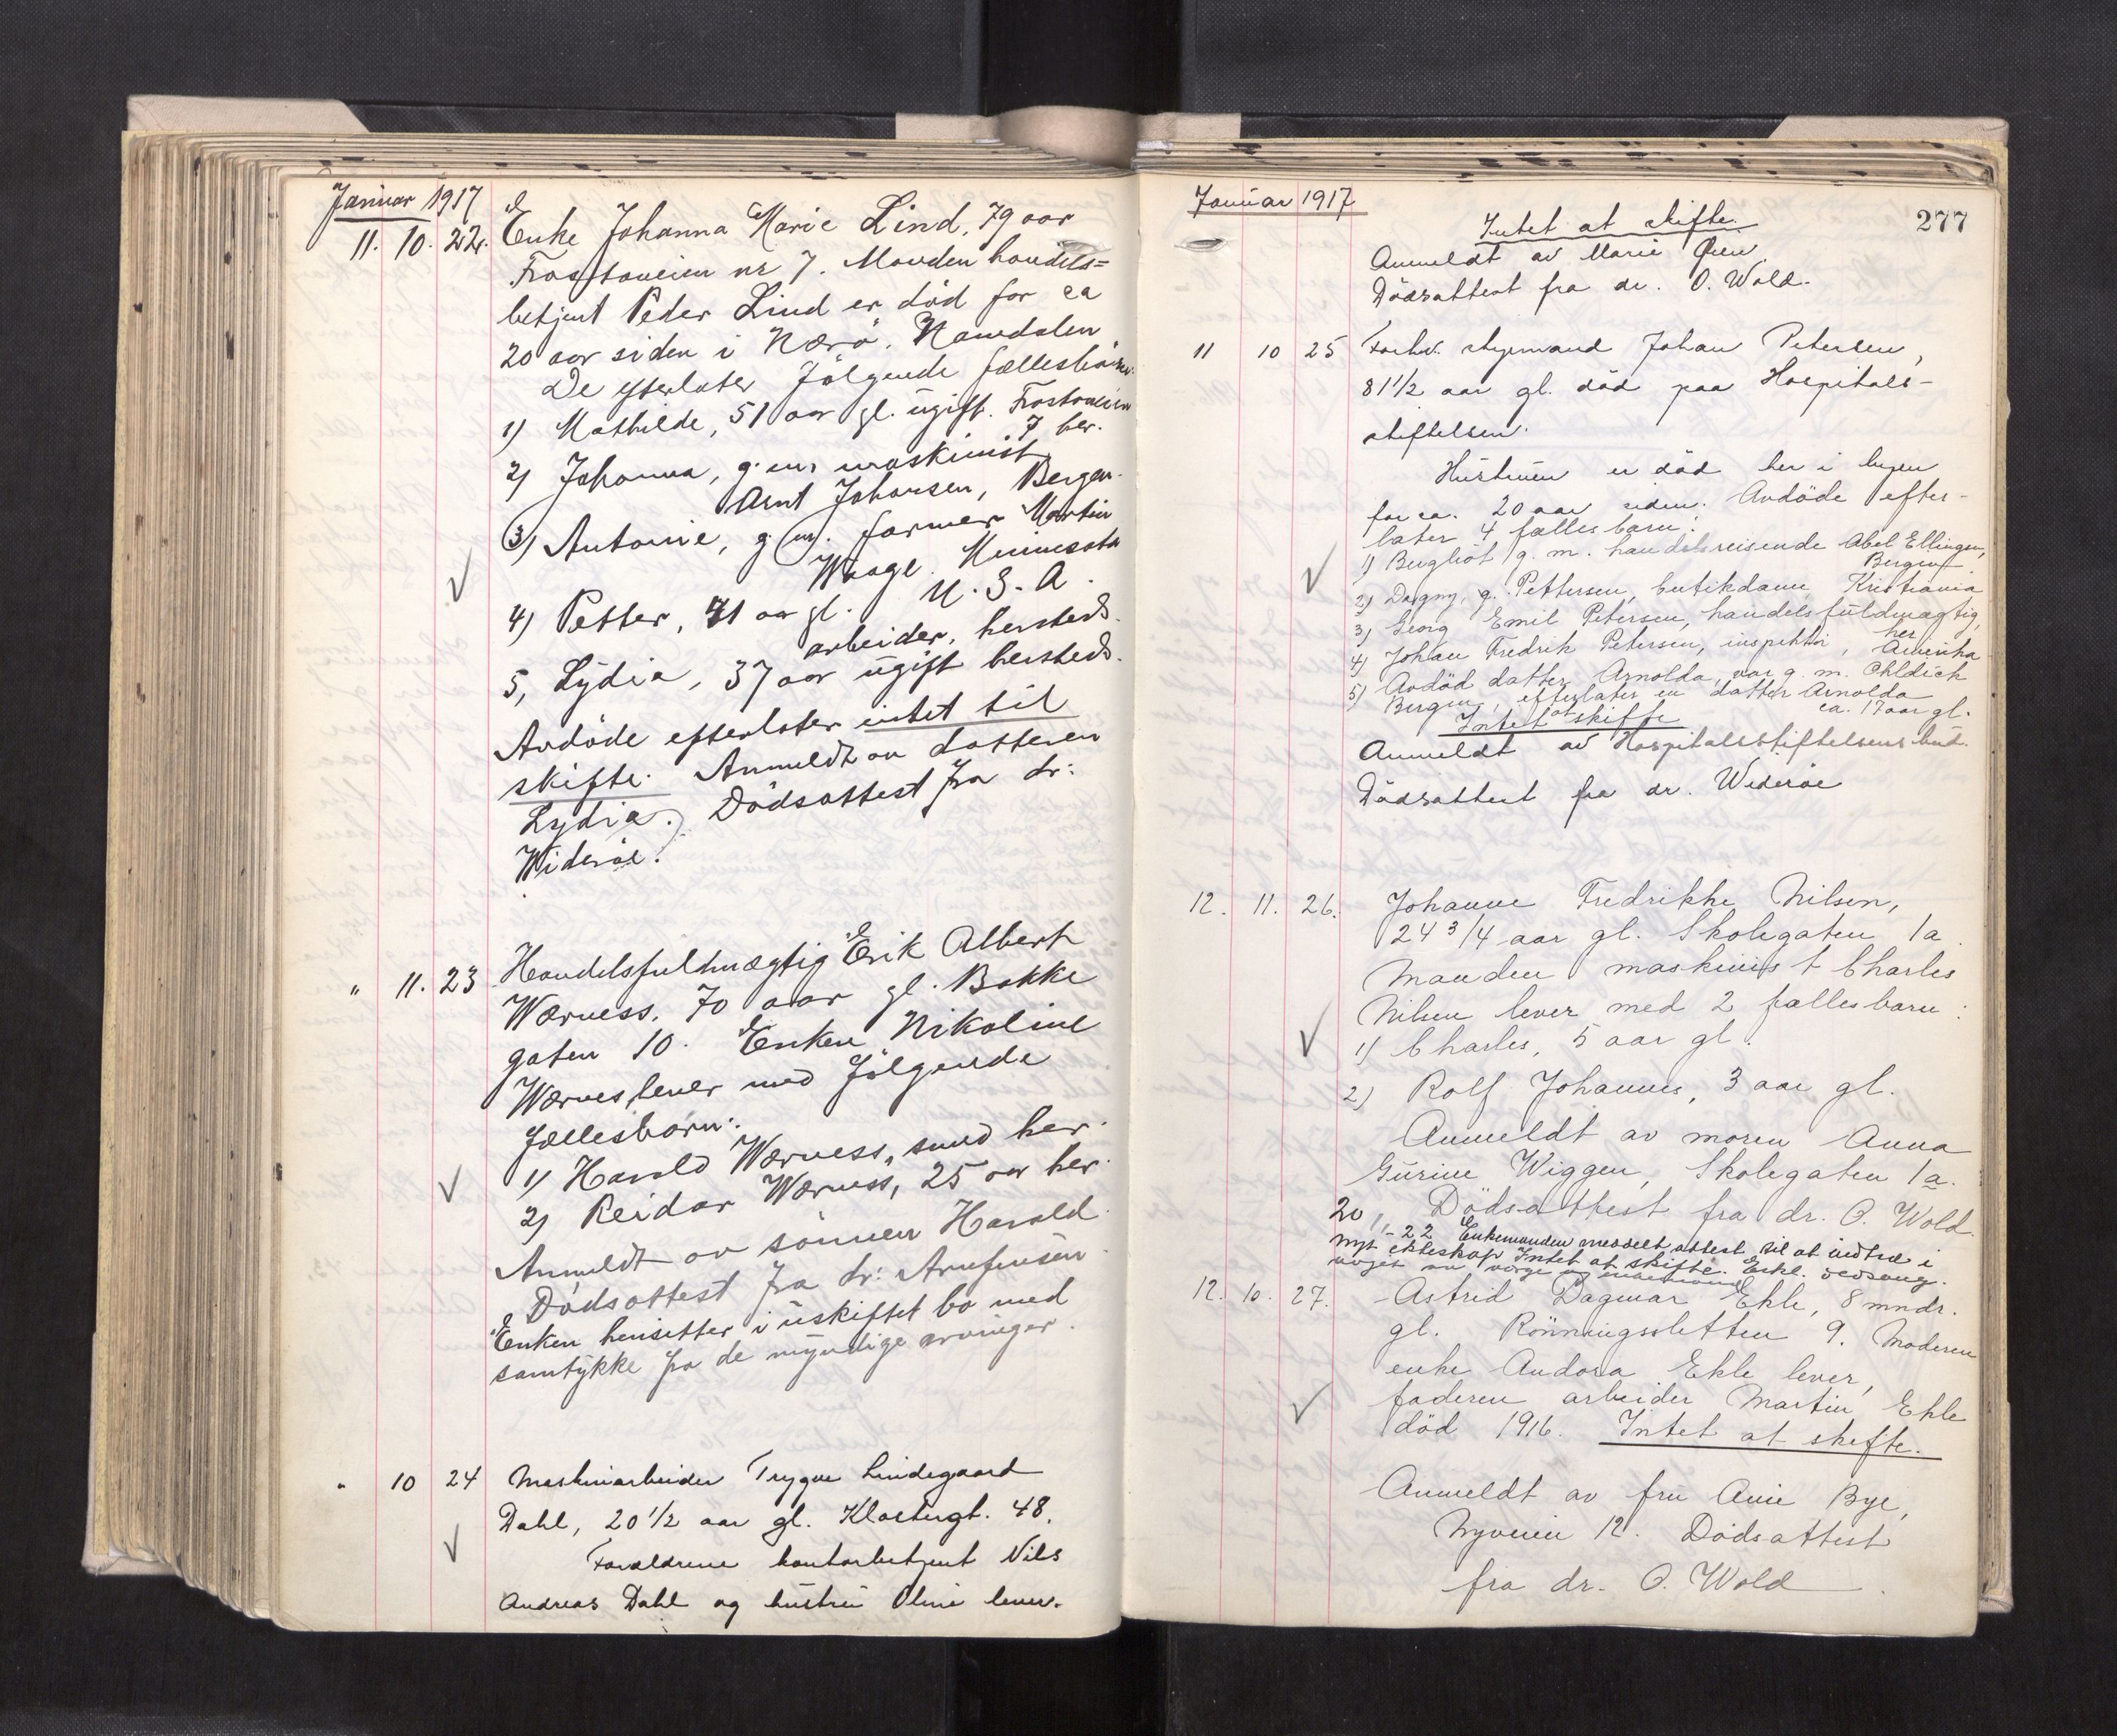 Januar 1917
11. 10. 22. Enke Johanna Marie Lind, 79 aar
Frostaveien nr 7. Manden handels=
betjent Peder Lind er död for ca
20 aar siden i Nærö, Namdalen
De efterlater følgende fællesbörn:
1) Mathilde, 51 aar gl. ugift. Frostaveien
7 her.
2) Johanna, g. m. maskinist
Arnt Johansen, Bergen.
3) Antonie, g. m. farmer Martin
Waage. Minnesota
U. S. A.
4) Petter, 41 aar gl.
arbeider, hersteds.
5, Lydia, 37 aar ugift hersteds.
Avdöde efterlater intet til
skifte. Anmeldt av datteren
Lydia. Dödsattest fra dr:
Wideröe.
" 11. 23 Handelsfuldmægtig Erik Albert
Wærness, 70 aar gl. Bakke
gaten 10. Enken Nikoline
Wærnes lever med følgende
fællesbörn:
1) Harald Wærness, smed her.
2) Reidar Wærness, 25 aar her.
Anmeldt av sönnen Harald.
Dödsattest fra dr:
Enken hensitter i uskiftet bo med
samtykke fra de myndige arvinger.
" 10 24 Maskinarbeider Trygve Lindegaard
Dahl, 20 1/2 aar gl. Klostergt. 48.
Forældrene kontorbetjent Nils
Andreas Dahl og hustru Oline lever.
Januar 1917
277
Intet at skifte.
Anmeldt av Marie Öien
Dödsattest fra dr. O. Wold.
11 10 25 Forhv. styrmand Johan Petersen,
81 1/2 aar gl. död paa Hospitals-
stiftelsen.
Hustruen er död her i byen
for ca. 20 aar siden. Avdöde efter-
later 4 fælles barn:
1) Bergliot g. m. handelsreisende Abel Ellingsen,
Bergen
2) Dagny, g. Pettersen, butikdame, Kristiania
3) Georg Emil Petersen, handelsfuldmægtig,
her
4) Johan Fredrik Petersen, inspektör, Amerika
5) Avdöd datter Arnolda, var g. m. Ohldieck
Bergen, efterlater en datter Arnolda
ca. 17 aar gl.
Intet at skifte
Anmeldt av Hospitalsstiftelsens bud.
Dödsattest fra dr. Wideröe
12. 11. 26. Johanne Fredrikke Nilsen,
24 3/4 aar gl. Skolegaten 1a.
Manden maskinist Charles
Nilsen lever med 2 fællesbarn:
1) Charles, 5 aar gl.
2) Rolf Johannes, 3 aar gl.
Anmeldt av moren Anna
Gurine Wiggen, Skolegaten 1a.
Dödsattest fra dr. O. Wold
20/11-22 Enkemanden meddelt attest til at indtræ i
nyt ekteskap. Intet at skifte. Erkl. vedsaug.
av verge
12. 10. 27. Astrid Dagmar Ekle, 8 mndr.
gl. Rönningsletten 9. Moderen
enke Andora Ekle lever,
faderen arbeider Martin Ekle
död 1916. Intet at skifte.
Anmeldt av fru Anie Bye,
Nyveien 12. Dödsattest
fra dr. O. Wold.